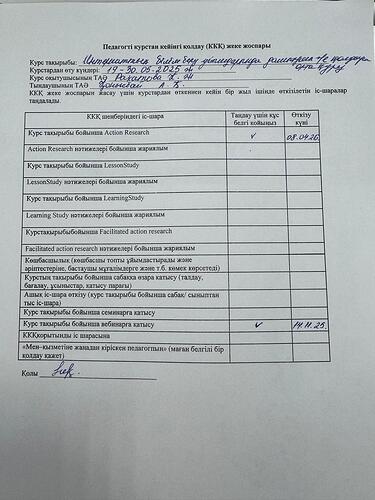 Педагогті курстан кейінгі қолдау (ККҚ) жеке жоспары
Курс тақырыбы:
Курстардан өту күндері: 19-30.05.2025 ж
Курс оқытушысының ТАӘ Рахатова Қ. Ж
Тыңдаушының ТАӘ А. К.
ККҚ жеке жоспарын жасау үшін курстардан өткеннен кейін бір жыл ішінде өткізілетін іс-шаралар
таңдалады.
ККҚ шеңберіндегі іс-шара Таңдау үшін құс белгі қойыңыз Өткізу күні
Курс тақырыбы бойынша Action Research ✓ 08.04.26.
Action Research нәтижелері бойынша жариялым
Курс тақырыбы бойынша LessonStudy
LessonStudy нәтижелері бойынша жариялым
Курс тақырыбы бойынша LearningStudy
Learning Study нәтижелері бойынша жариялым
Курстақырыбыбойынша Facilitated action research
Facilitated action research нәтижелері бойынша жариялым
Көшбасшылық (көшбасшы топты ұйымдастырады және
әріптестеріне, бастаушы мұғалімдерге және т.б. көмек көрсетеді)
Курстың тақырыбы бойынша сабаққа өзара қатысу (талдау,
бағалау, ұсыныстар, қатысу парағы)
Ашық іс-шара өткізу (курс тақырыбы бойынша сабақ/ сыныптан
тыс іс-шара)
Курс тақырыбы бойынша семинарға қатысу
Курс тақырыбы бойынша вебинарға қатысу ✓ 14.11.25.
ККҚқорытынды іс шарасына
«Мен–қызметіне жаңадан кіріскен педагогпын» (маған белгілі бір
қолдау қажет)
Қолы